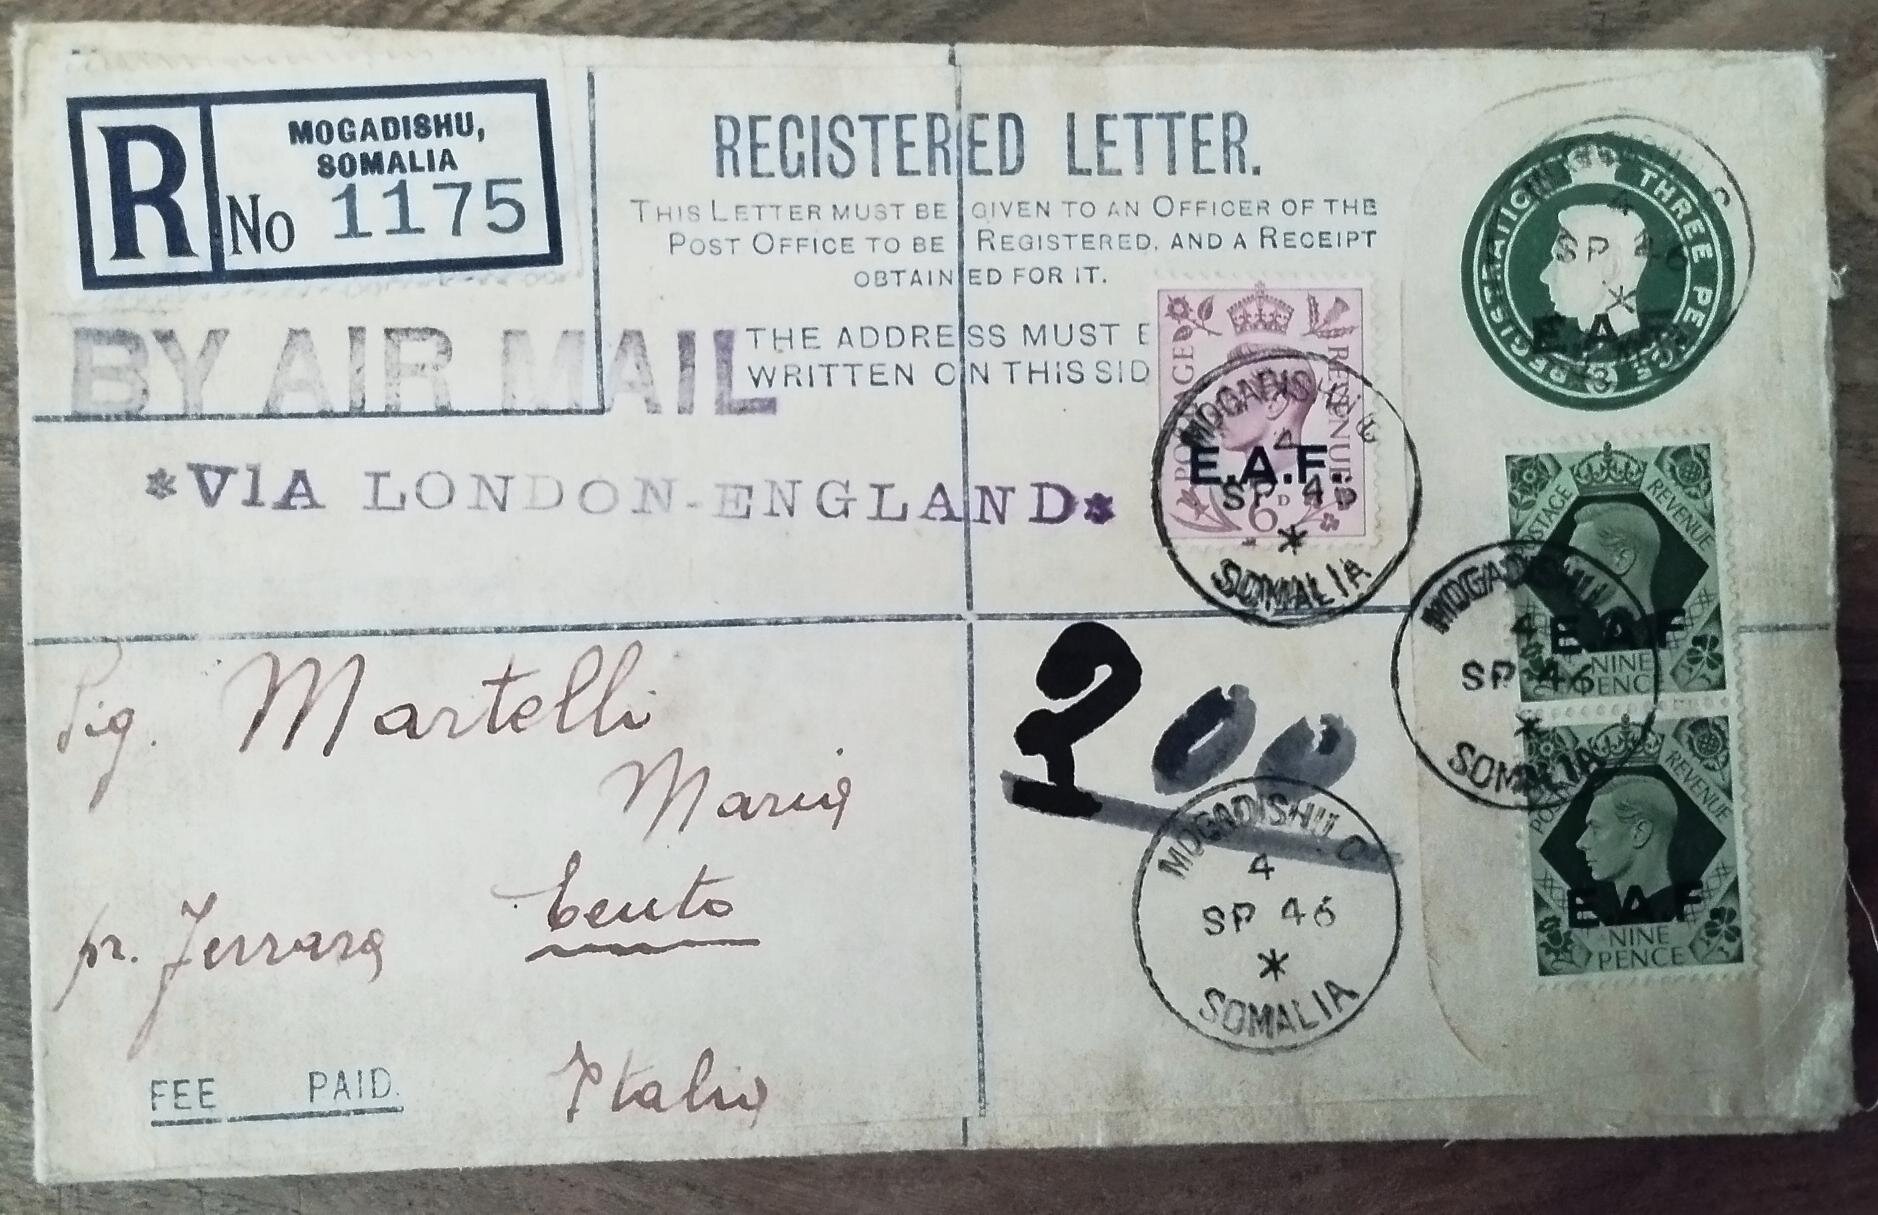 R
MOGADISHU,
SOMALIA
No 1175
REGISTERED LETTER.
THIS LETTER MUST BE GIVEN TO AN OFFICER OF THE
POST OFFICE TO BE REGISTERED, AND A RECEIPT
OBTAINED FOR IT.
THE ADDRESS MUST B
WRITTEN ON THIS SID
BY AIR MAIL
*VIA LONDON-ENGLAND*
REGISTRATION THREE PENCE
3
E.A.F.
4
SP 46
*
POSTAGE REVENUE
E.A.F.
6D
MOGADISHU. C
4
SP 46
*
SOMALIA
POSTAGE REVENUE
E.A.F
NINE
PENCE
MOGADISHU. C
4
SP 46
*
SOMALIA
POSTAGE REVENUE
E.A.F
NINE
PENCE
MOGADISHU. C
4
SP 46
*
SOMALIA
Sig. Martelli
Maria
Cento
pr. Ferrara
Italia
FEE PAID.